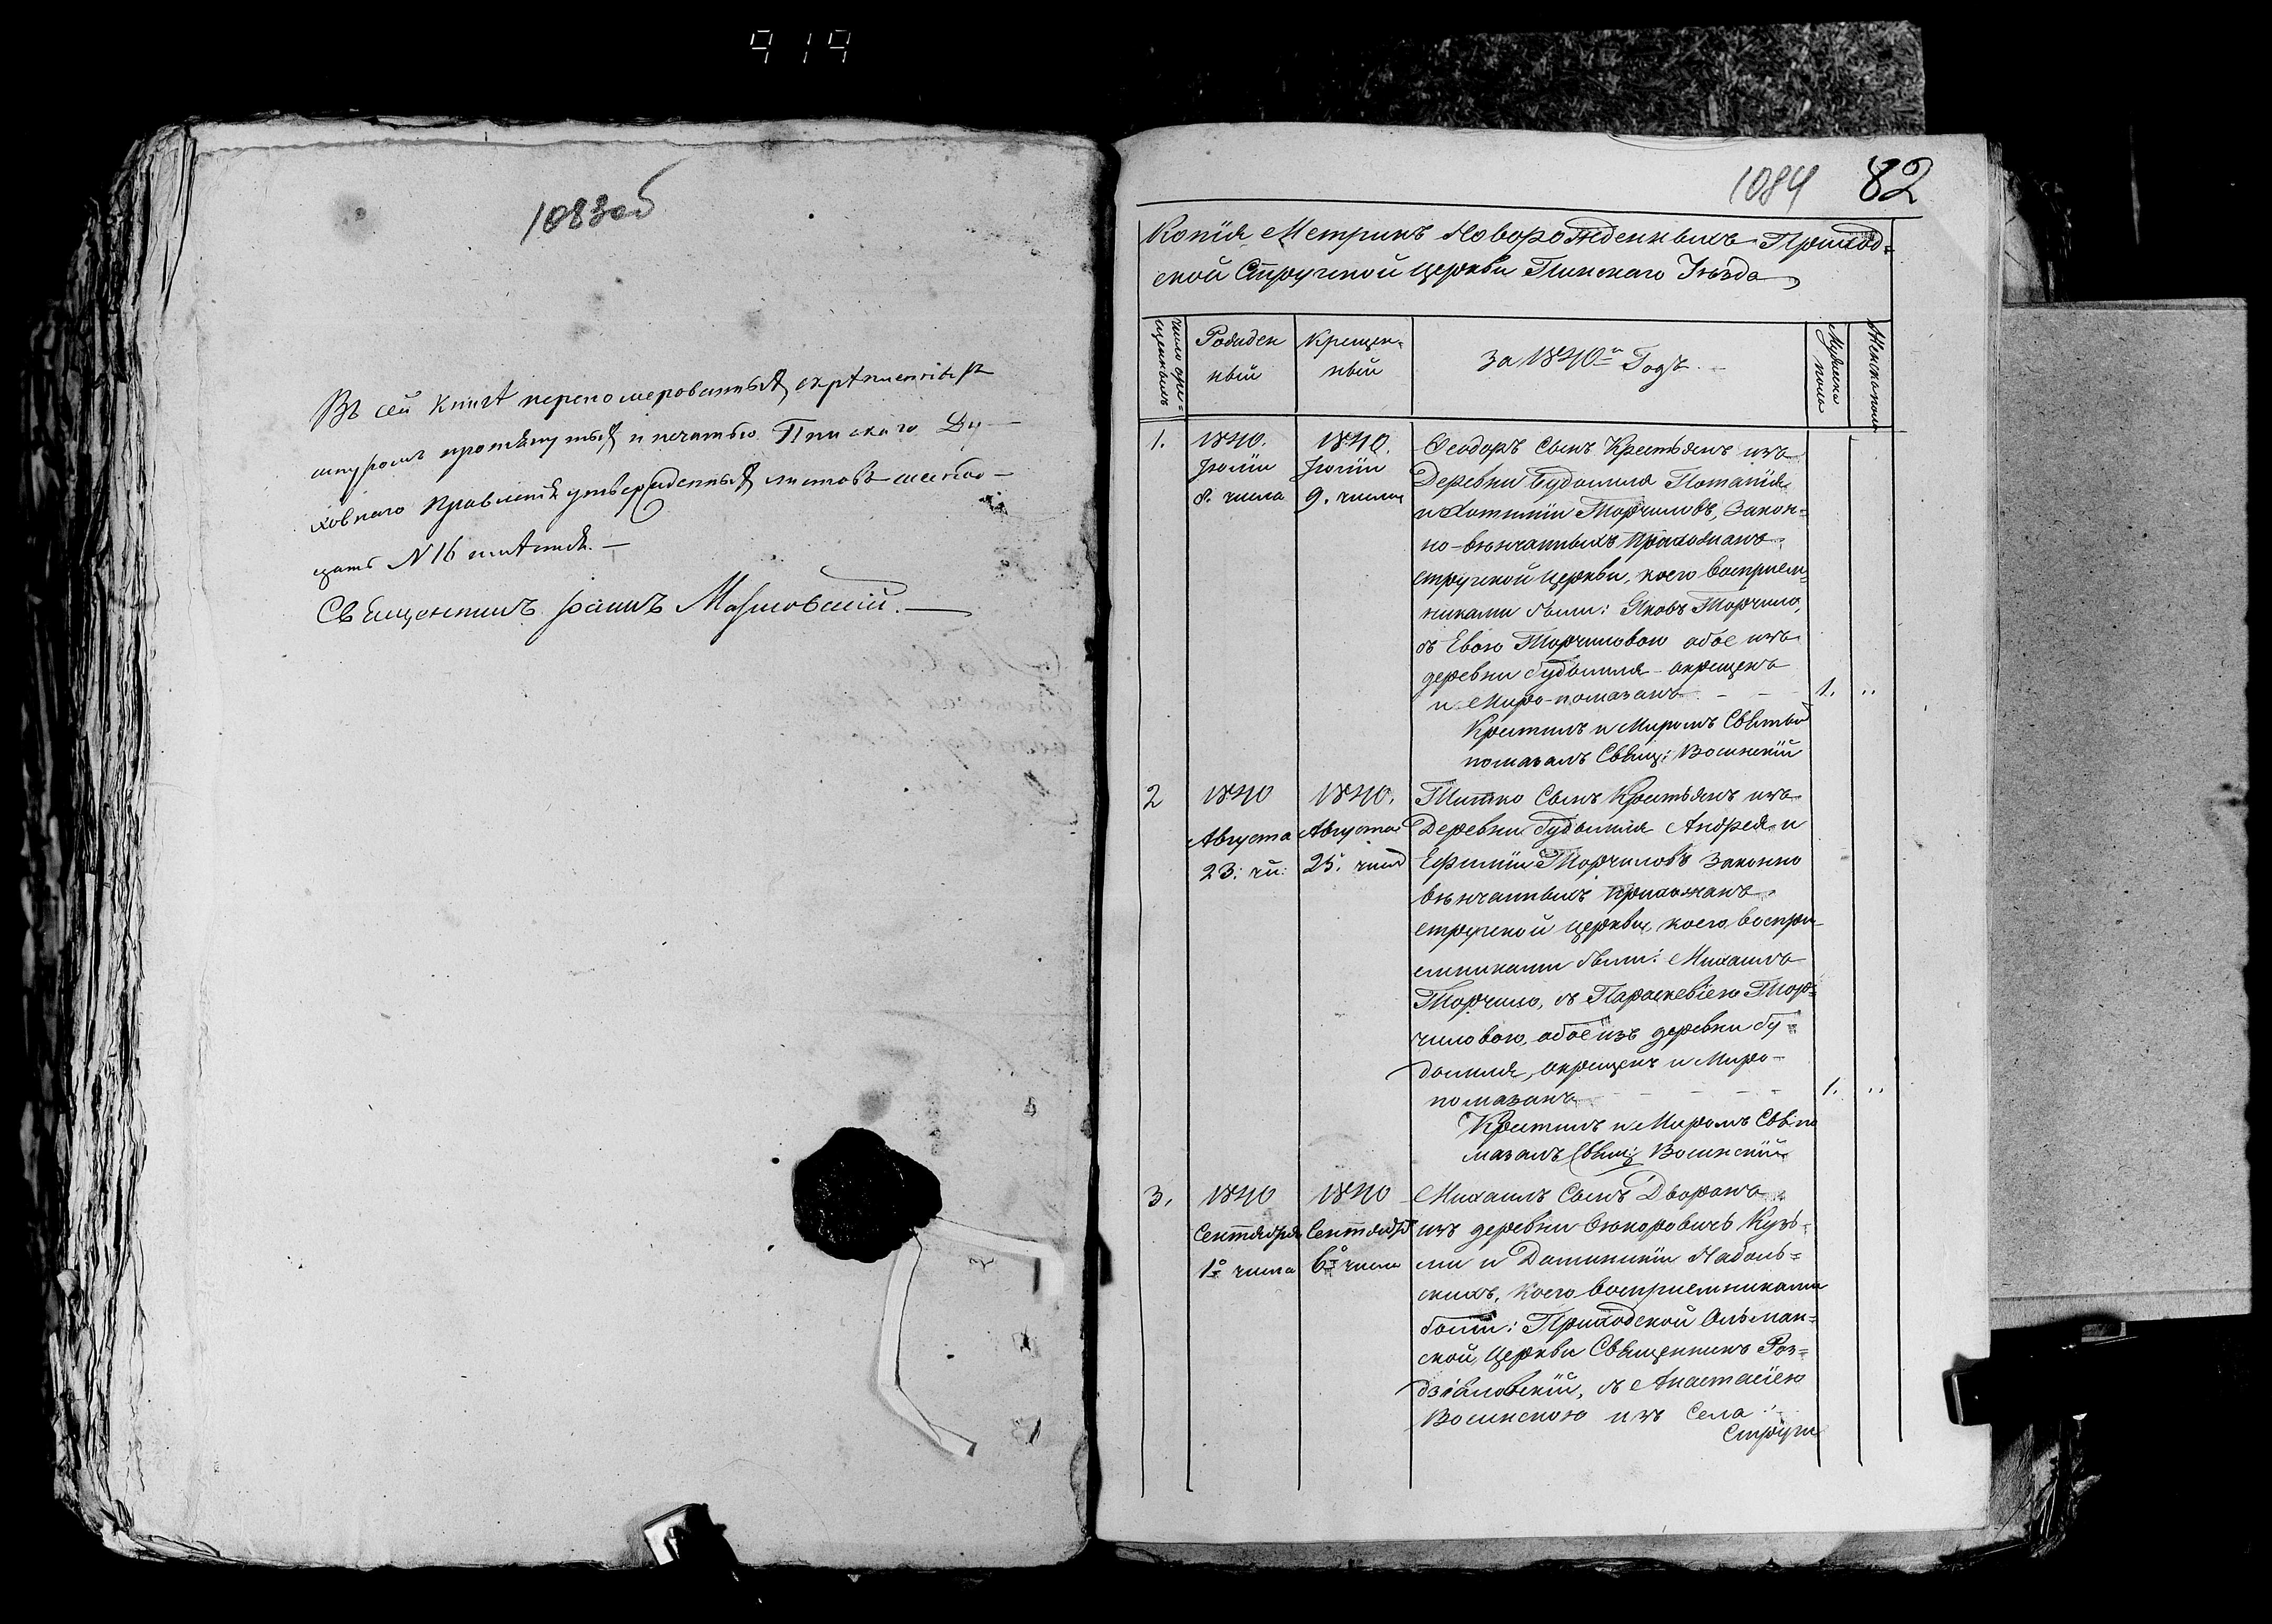 919
1083об
Въ сей Книгѣ перономерованныхъ скрѣпленныхъ
шнуромъ протянутыхъ и печатью Пинскаго Ду-
ховнаго Правленія утвержденныхъ листовъ шестнад-
цать N 16 листовъ. —
Священникъ Іоаннъ —
1084 82
Копія Метрикъ Новорожденныхъ Приход=
ской Стружской Церкви Пинскаго Уѣзда
число кре=
щенныхъ
Рожден
ный
Крещен=
ный
за 1840й Годъ.
Мужеска
пола
Женска пола
1.
1840.
Іюлія
8. числа
1840.
Іюлія
9. числа
Ѳеодоръ Сынъ Крестьянъ изъ
Деревни Будымля Потапія
и Хотиніи Торчиловъ, Закон=
но-вѣнчанныхъ Прихожанъ
стружской Церкви, коего восприем=
никами были: Яковъ Торчило,
съ Евою Торчиловою обое изъ
деревни Будымля - окрещенъ
и Миро-помазанъ - - 1. ..
Крестилъ и Миромъ Святымъ
помазалъ Свящ: Волинскій
2
1840
Августа
23. чи:
1840.
Августа
25. числа
Титко Сынъ Крестьянъ изъ
Деревни Будымля Андрея и
Ефиміи Торчиловъ Законно
вѣнчанныхъ Прихожанъ
стружской церкви, коего воспри-
емниками были: Михаилъ
Торчило, съ Параскевіею Тор=
чиловою, обое изъ деревни Бу=
дымля, окрещенъ и Миро-
помазанъ - - - - 1. ..
Крестилъ и Миромъ Свв: по
мазалъ Свящ: Волинскій
3.
1840
Сентября
1о числа
1840
Сентября
6о числа
Михаилъ Сынъ Дворянъ
изъ деревни Ѳюкоровичъ Кузь=
мы и Доминикіи Наболь=
скихъ, Коего восприемниками
были: Приходской Ольман=
ской, Церкви Священникъ Роз=
дзіаловскій, съ Анастасіею
Волинскою изъ Села
Стружи